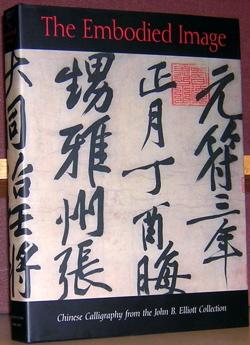 The Embodied Image
元符三年
正月丁酉晦
甥雅州張
大同治任將
Chinese Calligraphy from the John B. Elliott Collection